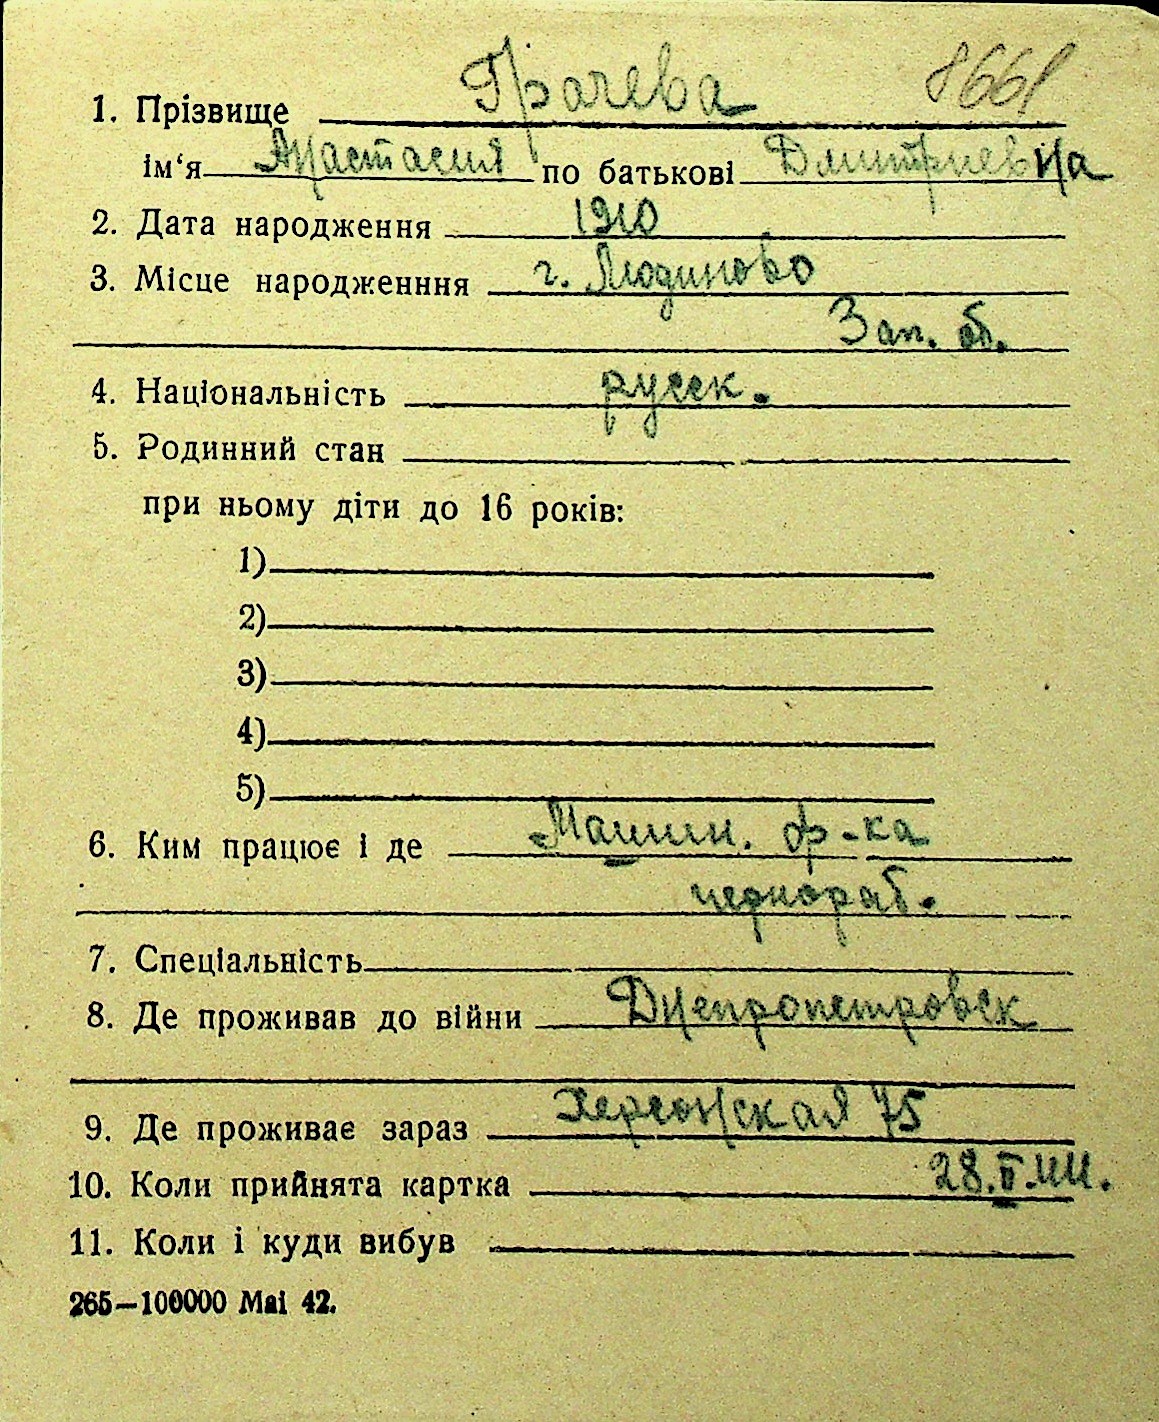 8661
1. Прізвище Грачева
ім‘я Анастасия по батькові Дмитриевна
2. Дата народження 1910
3. Місце народженння г. Людиново
Зап. об.
4. Національність русск.
5. Родинний стан
при ньому діти до 16 років:
1)
2)
3)
4)
5)
6. Ким працює і де Машин. ф-ка
чернораб.
7. Спеціальність
8. Де проживав до війни Днепропетровск
9. Де проживає зараз Херсонская 75
10. Коли прийнята картка 28.II
11. Коли і куди вибув
265—100000 Mai 42.